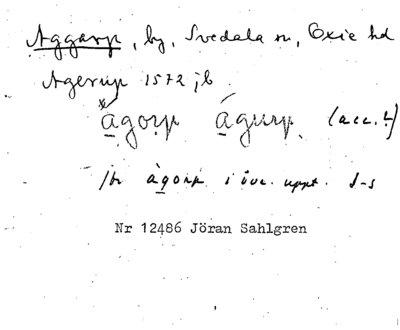 Aggarp, by, Svedala sn, Oxie hd
Agerup 1572 jb.
ágorp águrp (acc. 2)
jfr àgorp i övr. uppt. d-s
Nr 12486 Jöran Sahlgren